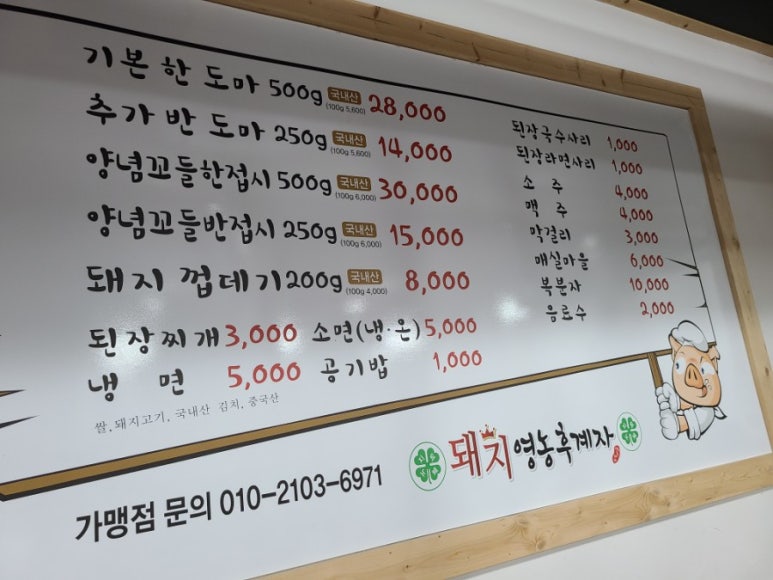 기본 한 도마 500g 국내산 (100g 5,600) 28,000
추가 반 도마 250g 국내산 (100g 5,600) 14,000
양념꼬들한접시 500g 국내산 (100g 6,000) 30,000
양념꼬들반접시 250g 국내산 (100g 6,000) 15,000
돼지 껍데기 200g 국내산 (100g 4,000) 8,000
된장찌개 3,000 소면(냉·온) 5,000
냉 면 5,000 공기밥 1,000
쌀,돼지고기, 국내산 김치, 중국산
된장국수사리 1,000
된장라면사리 1,000
소 주 4,000
맥 주 4,000
막걸리 3,000
매실마을 6,000
복분자 10,000
음료수 2,000
가맹점 문의 010-2103-6971
돼지영농후계자